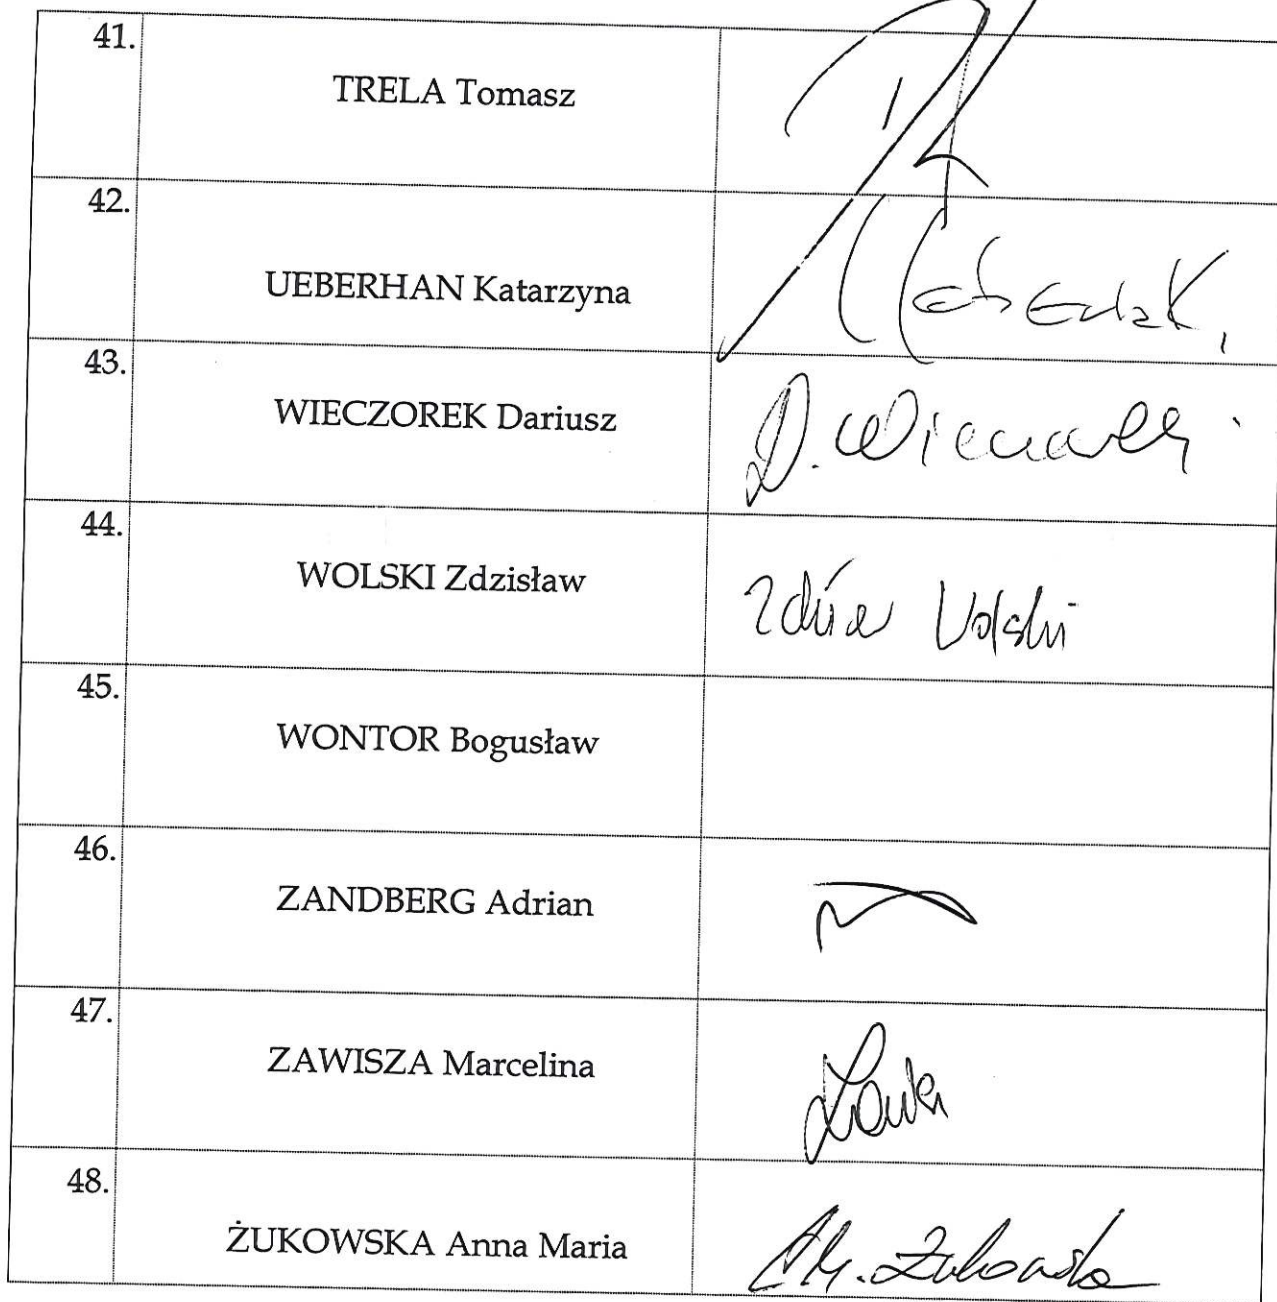 41.
TRELA Tomasz
42.
UEBERHAN Katarzyna
43.
WIECZOREK Dariusz
D. Wieczorek
44.
WOLSKI Zdzisław
Wolski
45.
WONTOR Bogusław
46.
ZANDBERG Adrian
47.
ZAWISZA Marcelina
48.
ŻUKOWSKA Anna Maria
AM. Żukowska